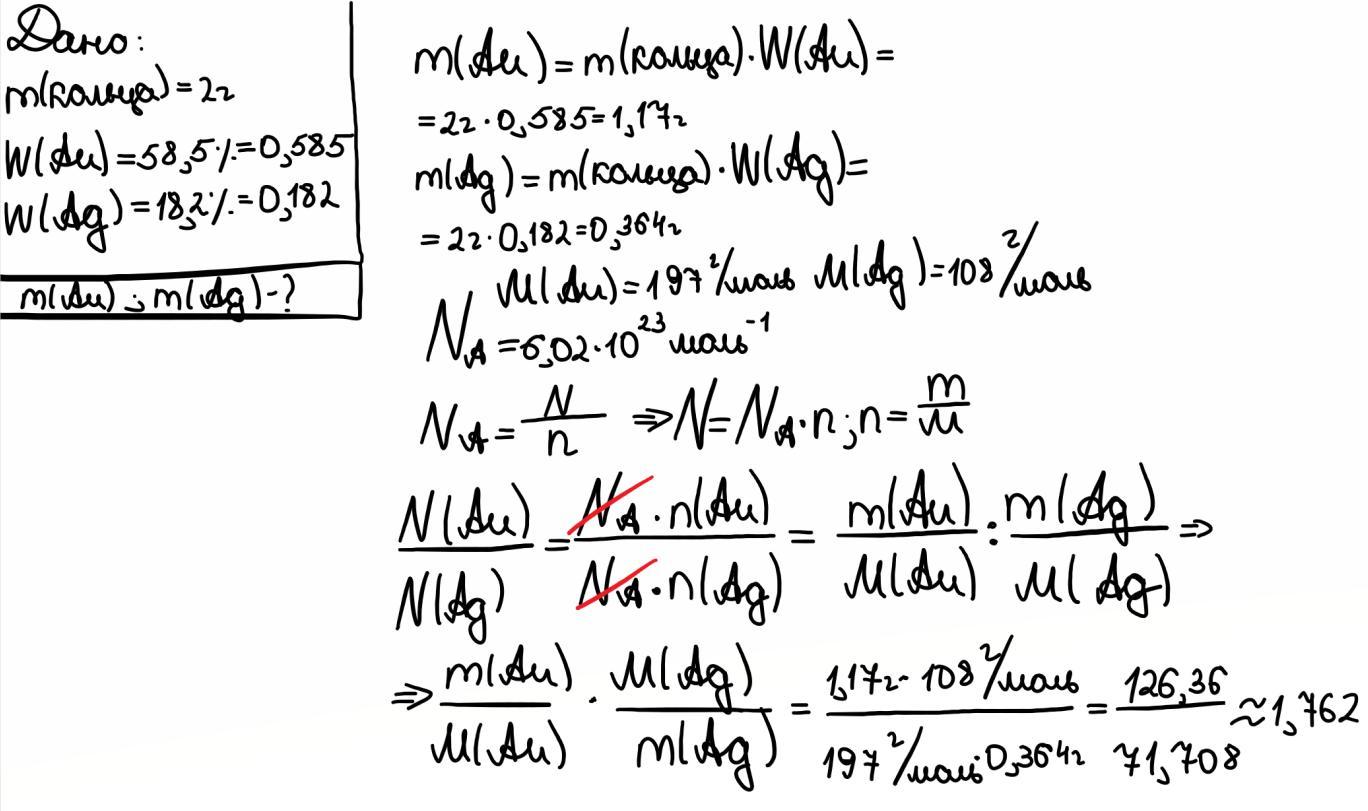 Дано:
m(кольца)=2г
W(Au)=58,5%=0,585
W(Ag)=18,2%=0,182
m(Au); m(Ag)-?
m(Au)=m(кольца)·W(Au)=
=2г·0,585=1,17г
m(Ag)=m(кольца)·W(Ag)=
=2г·0,182=0,364г
M(Au)=197 г/моль M(Ag)=108 г/моль
N_A=6,02·10^23 моль^-1
N_A=N/n ⇒N=N_A·n;n=m/M
N(Au)/N(Ag)=N_A·n(Au)/N_A·n(Ag)=m(Au)/M(Au):m(Ag)/M(Ag)⇒
⇒m(Au)/M(Au)·M(Ag)/m(Ag)=1,17г·108 г/моль/197 г/моль·0,364г=126,36/71,708≈1,762